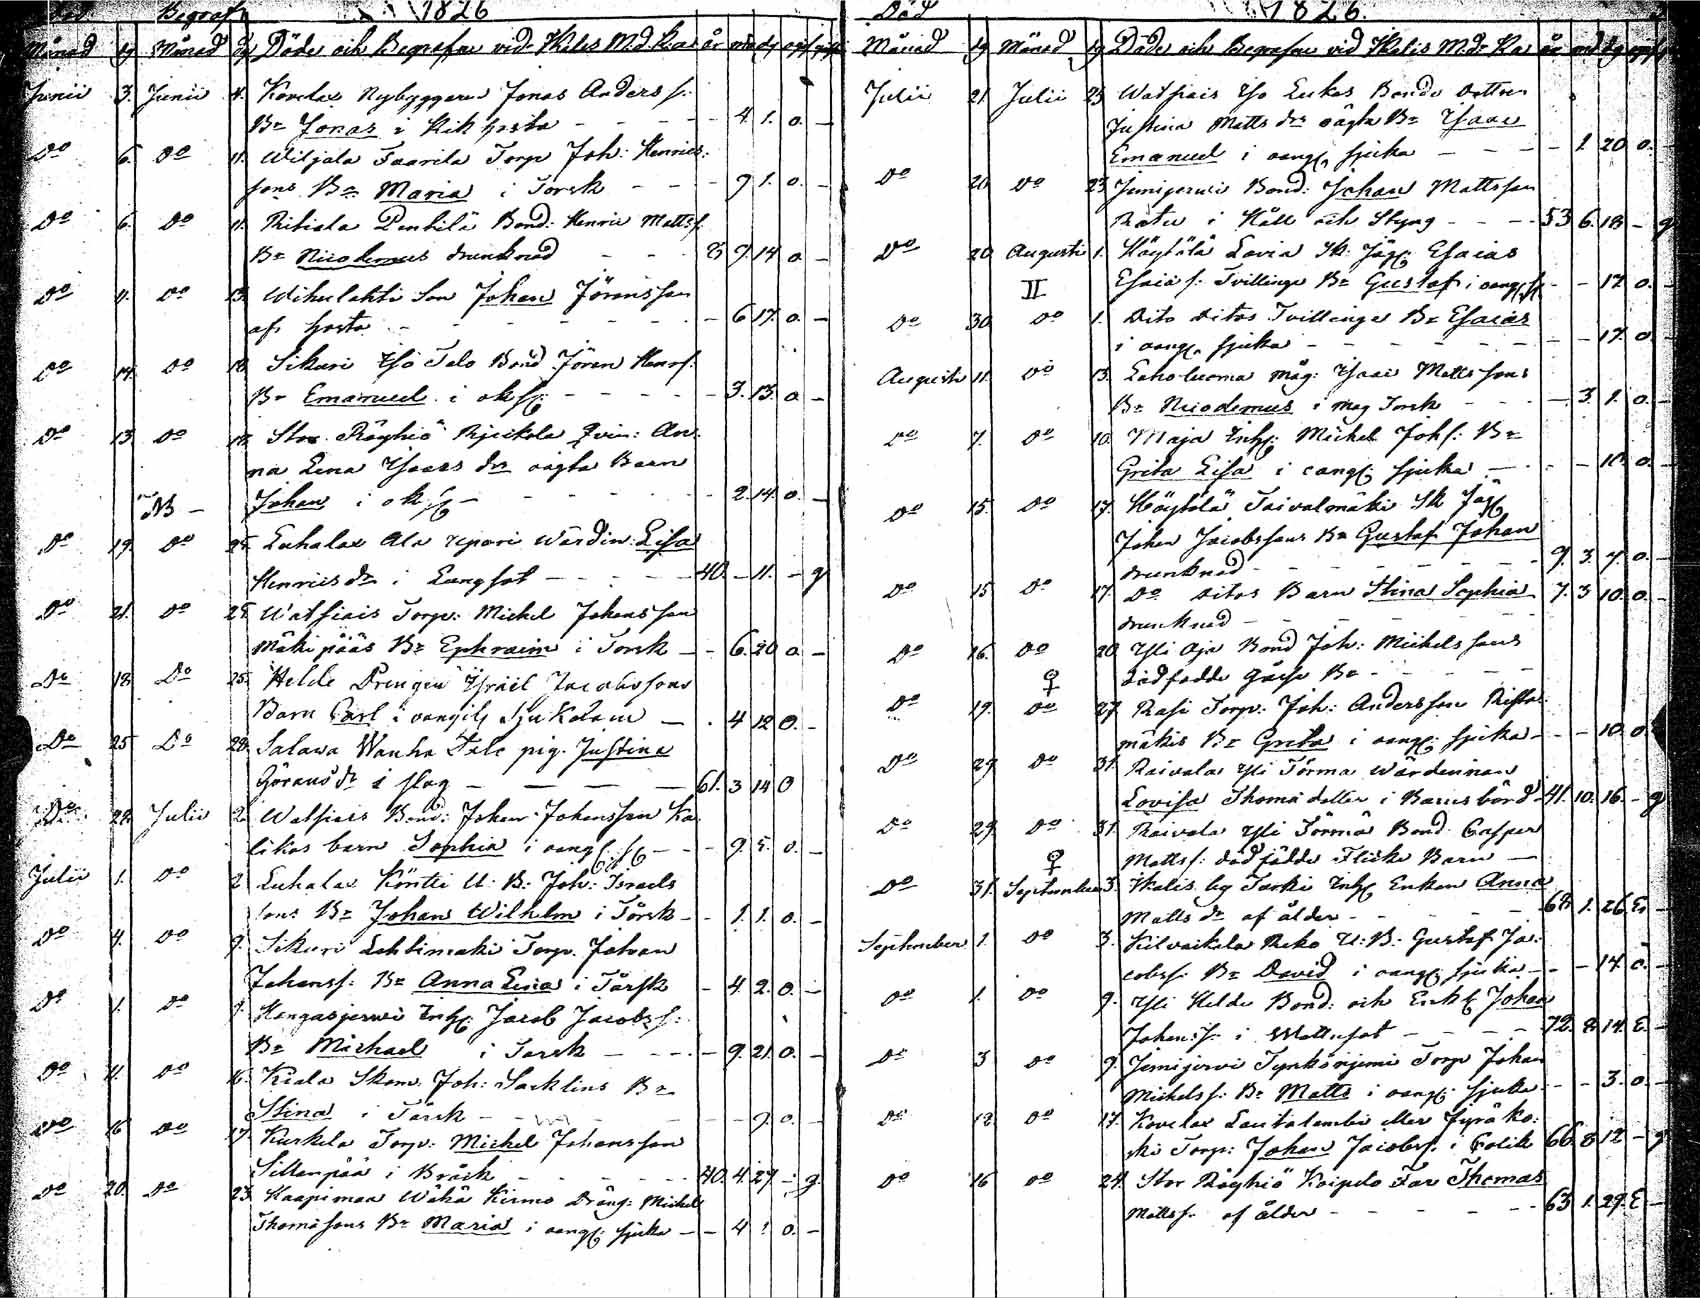 Död Begrafn 1826
Månad dg Månad dg Döde och Begrafne vid Ikalis M.d. Ka år må dg ogf gift
Junii 3. Junii 4. Kovelax Nybyggaren Jonas Anders s:
Bn Jonas i Kikhosta - 4. 1. o. -
Do 6. Do 11. Wiljala Faarila Torp Joh: Henrics:
sons Bn Maria i Torsk - - 9 1. o. -
Do 6. Do 11. Ritiala Penkilä Bond: Henric Matts s.
Bn Nicodemus drunknad - 3 9. 14 o -
Do 11. Do 13. Wihulahti Son Johan Jöransson
af hosta - - 6 17. o. -
Do 14. Do 18 Sikuri Yso Talo Bond Jören Henr s.
Bn Emanuel i ok sj: - 3. 13. o -
Do 13 Do 18. Stor Röyhiö Rijeikola Qvin: An
na Lena Isaacs dr oägta Barn
NB - Johan i ok sj - 2. 14. o. -
Do 19. Do 25. Luhalax Ala Uppari Wärdin: Lisa
Henrics dr i Lungsot - 40. - 11. - g
Do 21. Do 25. Watsiais Torp: Michel Johansson
Mäkipääs Bn Ephraim i Torsk - - 6. 20 o -
Do 18. Do 25. Helde Drengen Isräel Jacobssons
Barn Carl i oangifl Sjukdom - 4 12 o. -
Do 25 Do 28. Salawa Wanha Tale pig. Justina
Görans dr i slag - 61. 3 14 o
Do 28. Julii 2. Watsiais Bond: Johan Johansson Ka
likas barn Sophia i oangf: sj - - 9. 5. o. -
Julii 1. Do 2 Luhalax Köntti U: B: Joh: Israels
sons Bn Johan Wilhelm i Tårsk - - 1. 1. o. -
Do 4. Do 9. Sikuri Lehtimäki Torp. Johan
Johans s: Bn Anna Lisa i Tårsk - 4. 2. o. -
Do 1. Do 9. Kangasjerwi Inh: Jacob Jacobs s:
Bn Michael i Torsk - - 9. 21. o. -
Do 11. Do 16. Kiala Skom. Joh: Sacklins Bn
Stina i Torsk - - 9. o. -
Do 16 Do 17. Kurkela Torp: Michel Johansson
Sillanpää i Bråck - 40. 4. 27 - g.
Do 20. Do 23. Haapimaa Wähä Kirmo Dräng: Michel
Thomæsons Bn Maria i oangf: sjuka - - 4 1 o. -
Död 1826.
Månad dg Månad dg Döde och Begrafne vid Ikalis M.dr Ka år må dg ogf
Julii 21. Julii 23 Watsiais Yso Lukas Bonde dottren
Justina Matts dr oägta Bn Isaac
Emanuel i oangf. sjuka - - 1. 20 o. -
Do 20 Do 23. Jämijerwi Bond: Johan Mattsson
Ratu i Håll och Styng - 53 6. 18 - g
Do 20. Augusti 1. Höytölä Lavia Sk: Jäg: Esaias
II Esaiæ s. Tvillinge Bn Gustaf i oangf. sj - - 17. o. -
Do 30 Do 1. Dito ditos Tvillinge Bn Esaias
i oangf. sjuka - - 17. o. -
Augusti 11. Do 13. Leholuoma måg: Isaac Mattssons
Bn Nicodemus i mag Torsk - - 3. 1. o. -
Do 7. Do 10. Maja Inh: Michel Joh s: Bn
Greta Lisa i oangf: sjuka - - 16. o. -
Do 15. Do 17. Höytölä Taivalmäki Sk Jäg
Johan Jacobssons Bn Gustaf Johan
drunknad - 9. 3. 7. o. -
Do 15 Do 17. Do ditos Barn Stina Sophia 7. 3 10. o. -
drunknad -
Do 16. Do 20 Yli Äjä Bond Joh: Michelssons
♀ dödfödde gåsse Bn -
Do 19. Do 27. Rasi Torp: Joh: Andersson Risto
mäkis Bn Greta i oangf. sjuka - - 10. o.
Do 29 Do 31. Raivala Yli Törmä Wärdinnan
Lovisa Thomædotter i Barnsbörd - 41. 10. 16. - g
Do 29. Do 31. Raivala Yli Törmä Bond Casper
♀ Matts s: dödfödde Flicke Barn -
Do 31. September 3. Ikalis by Tarki Inh: Enkan Anna
Matts dr af ålder - 68. 1. 26 E. -
September 1. Do 3. Kilvakala Reko U: B: Gustaf Ja:
cobs s. Bn David i oangf: sjuka - - 14. o. -
Do 1. Do 9. Yli Helde Bond: och Enkl: Johan
Johan: s: i Wattusot - 72. 8. 14. E. -
Do 3 Do 9. Jämijerwi Tyrkönjemi Torp Johan
Michels s: Bn Matts i oangf. sjuka - - 3. o. -
Do 12. Do 17. Kovelax Lautalambi eller Jyräko:
ski Torp: Johan Jacobs s. i Colik 66. 8. 12 - g
Do 16 Do 24. Stor Röyhiö Koipelo Far Thomas
Matts s. af ålder - 63 1. 29. E -